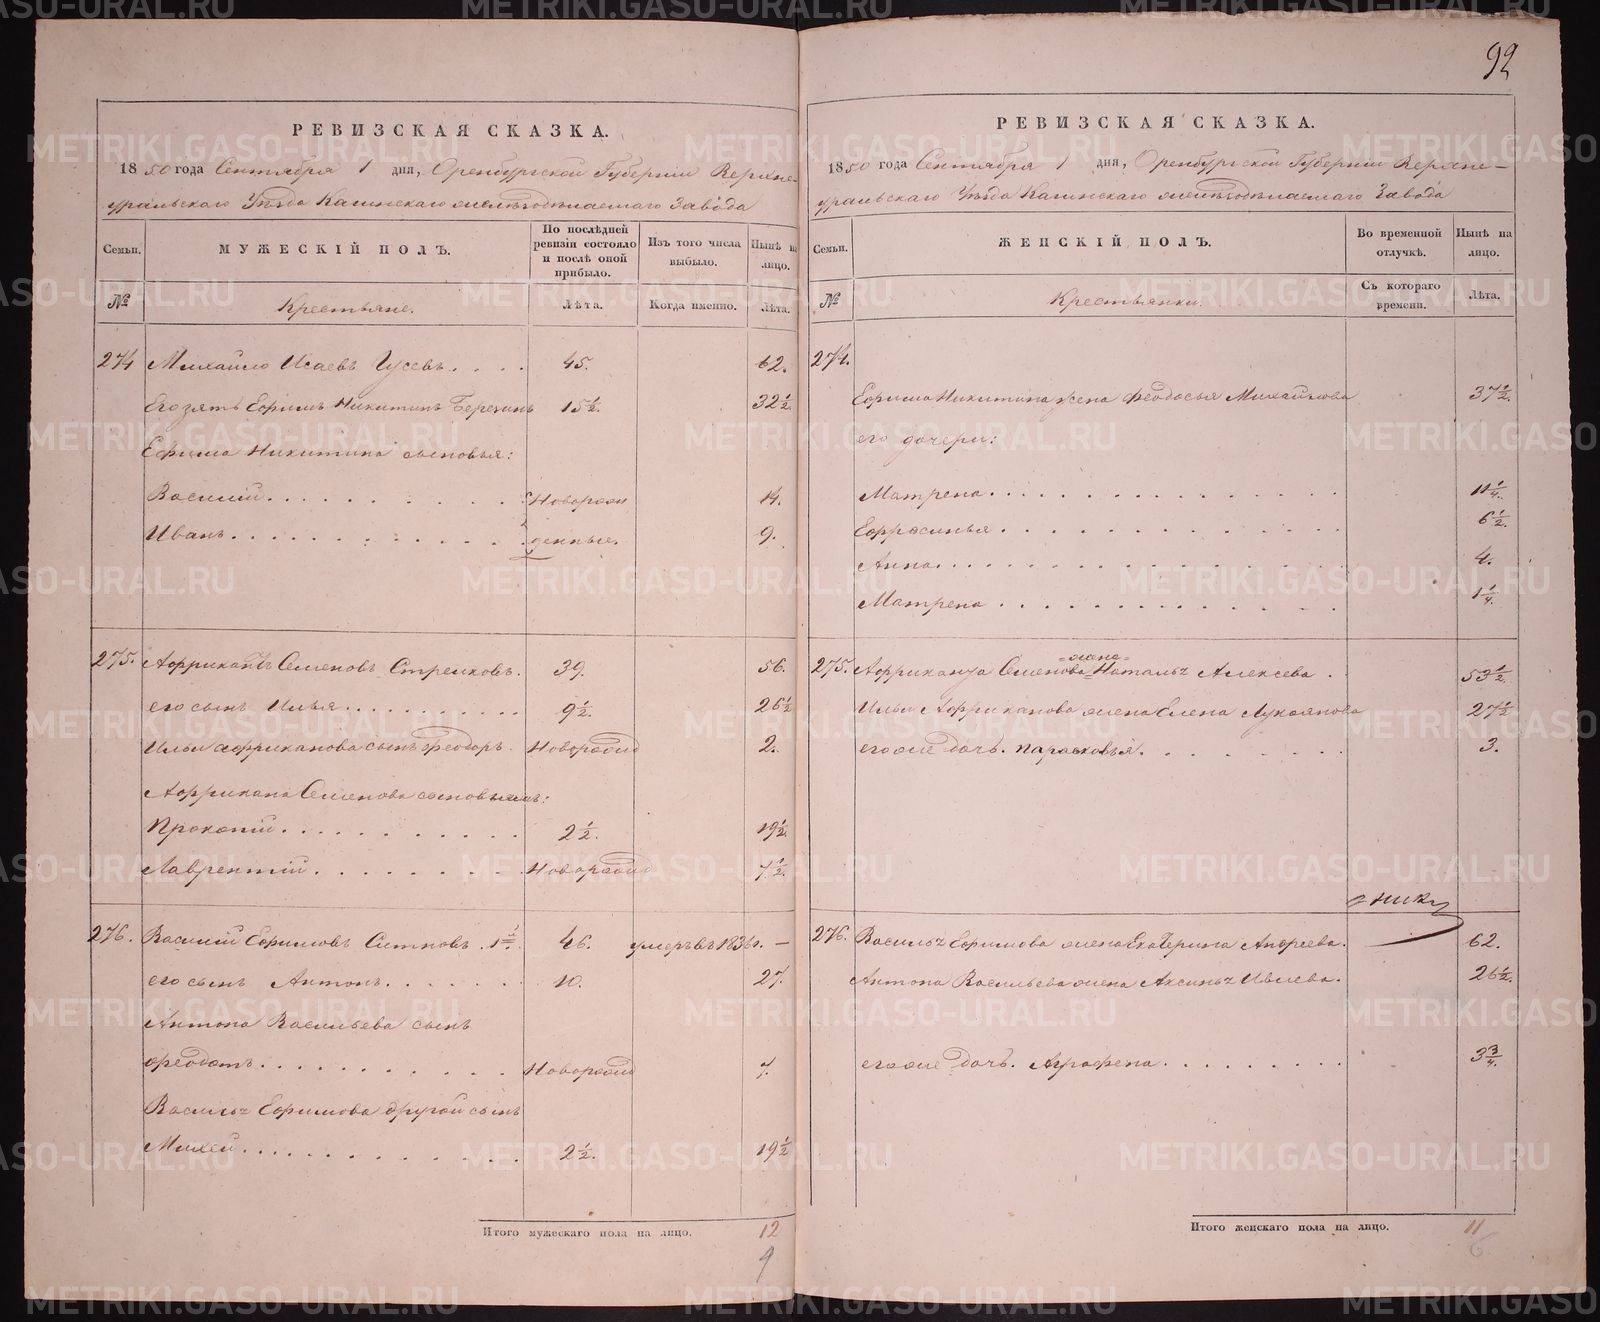 92
РЕВИЗСКАЯ СКАЗКА.
1850 года Сентября 1 дня, Оренбургской Губерніи Верхне-
уральскаго Уѣзда Кагинскаго желѣзодѣлаемаго Завода
Семьи. МУЖЕСКІЙ ПОЛЪ. По послѣдней ревизіи состояло и послѣ оной прибыло. Изъ того числа выбыло. Нынѣ на лицо.
№ Крестьяне. Лѣта. Когда именно. Лѣта.
274 Михайло Исаевъ Гусевъ.... 45. 62.
Его зять Ефимъ Никитинъ 15½. 32½.
Ефима Никитина сыновья:
Василий.......... Новорож 14.
Иванъ........... денные. 9.
275. Аффриканъ Семеновъ Стрелковъ. 39. 56.
его сынъ Илья.......... 9½. 26½
Ильи Аффриканова сынъ Феодоръ. Новорожд 2.
Аффрикана Семенова сыновья:
Прокопій.......... 2½. 19½.
Лаврентій......... Новорожд 7½.
276. Василий Ефимовъ Ситновъ. 1й. 46. умеръ въ 1836 г. —
его сынъ Антонъ....... 10. 27.
Антона Васильева сынъ
Феодотъ........... Новорожд 7.
Василья Ефимова другой сынъ
Михей............ 2½. 19½
Итого мужескаго пола на лицо. 12
9
РЕВИЗСКАЯ СКАЗКА.
1850 года Сентября 1 дня, Оренбургской Губерніи Верхне-
уральскаго Уѣзда Кагинскаго желѣзодѣлаемаго Завода
Семьи. ЖЕНСКІЙ ПОЛЪ. Во временной отлучкѣ. Нынѣ на лицо.
№ Крестьянки. Съ котораго времени. Лѣта.
274.
Ефима Никитина жена Феодосья Михайлова 37½.
его дочери:
Матрена............ 11¼.
Ефросинья........... 6½.
Анна............. 4.
Матрена............ 1¼.
275. Аффрикана Семенова жена Наталья Алексеева. 53½.
Ильи Аффриканова жена Елена Лукоянова 27½
его же дочь. Парасковья....... 3.
276. Василья Ефимова жена Екатерина Андреева. 62.
Антона Васильева жена Аксинья Ивлева. 26½.
его же дочь. Аграфена......... 3¾.
Итого женскаго пола на лицо. 11
6
METRIKI.GASO-URAL.RU